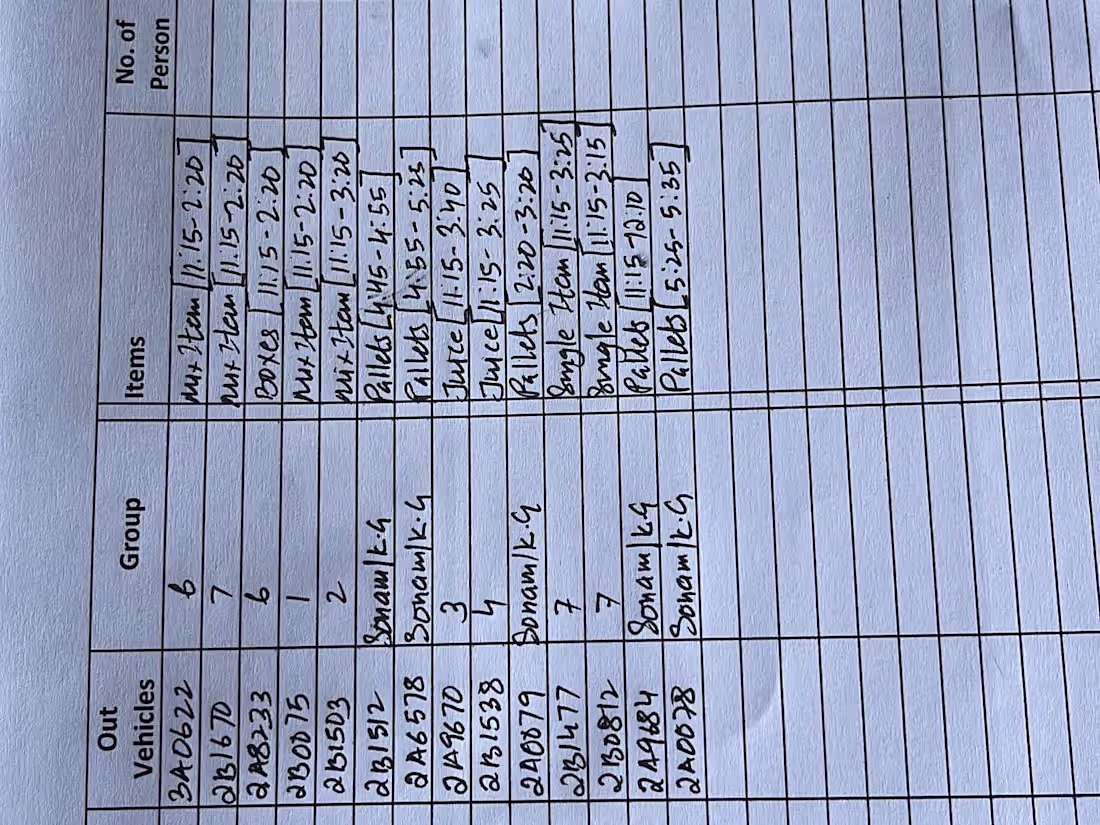 Out Vehicles Group Items No. of Person
3A0622 6 Mix Item [11:15-2:20]
2B1670 7 Mix Item [11.15-2:20]
2A8233 6 Boxes [11:15-2:20]
2B0075 1 Mix Item [11.15-2:20]
2B1503 2 Mix Item [11:15-3:20]
2B1512 Sonam/K.G Pallets [4:45-4:55]
2A6578 Sonam/K.G Pallets [4:55-5:25]
2A9670 3 Juice [11:15-3:40]
2B1538 4 Juice [11.15-3:25]
2A0079 Sonam/K.G Pallets [2:20-3:20]
2B1477 7 Single Item [11:15-3:25]
2B0812 7 Single Item [11:15-3:15]
2A9684 Sonam/K.G Pallets [11:15-12:10]
2A0078 Sonam/K.G Pallets [5:25-5:35]